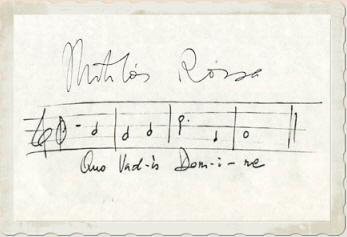 Miklós Rózsa
Quo Vad-is Dom-i-ne